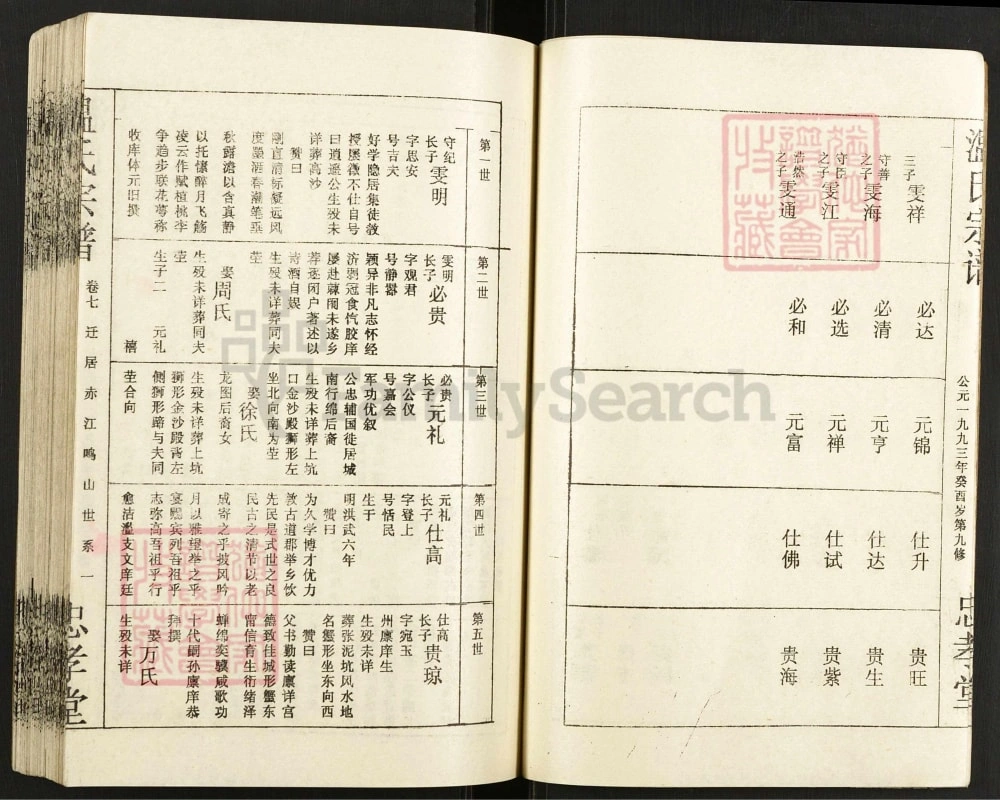 温氏宗谱
公元一九九三年癸酉岁第九修
忠孝堂
三子 雯祥
守善之子 雯海
守臣之子 雯江
浩然之子 雯通
必达
必清
必选
必和
元锦
元亨
元禅
元富
仕升
仕达
仕试
仕佛
贵旺
贵生
贵紫
贵海
第一世
守纪
长子 雯明
字思安
号吉夫
好学隐居集徒教
授屡薇不仕自号
曰逍遥公生殁未
详葬高沙
赞曰
刚直清标凝远风
度墨洒春潮笔垂
秋露澹以含真静
以托怀醉月飞觞
凌云作赋植桃李
争趋步联花萼称
收库体元旧撰
第二世
雯明
长子 必贵
字观君
号静嚣
颖异非凡志怀经
济弱冠食饩胶庠
屡赴棘闱未遂乡
荐遂闭户著述以
诗酒自娱
生殁未详葬同夫
茔
娶 周氏
生殁未详葬同夫
茔
生子二 元礼
禧
第三世
必贵
长子 元礼
字公仪
号嘉会
军功优叙
公忠辅国徒居城
南行绵后裔
生殁未详葬上坑
口金沙殿狮形左
坐北向南为茔
娶 徐氏
龙图后裔女
生殁未详葬上坑
狮形金沙殿背左
侧狮形路与夫同
茔合向
第四世
元礼
长子 仕高
字登上
号恬民
生于
明洪武六年
赞曰
为久学博才优力
敦古道郡举乡饮
先民是式世之良
民古之清节以老
成寄之乎披风吟
月以雅望举之乎
宴熙宾列吾祖乎
志弥高吾祖乎行
愈洁滥支文庠廷
第五世
仕高
长子 贵琼
字宛玉
州廪庠生
生殁未详
葬张泥坑风水地
名蟹形坐东向西
赞曰
父书勤读廪详宫
德致佳城形蟹东
甯信育生衍绪泽
蝉绵奕骥咸歌功
十代嗣孙廪庠恭
拜撰
娶 万氏
生殁未详
卷七
迁居赤江鸣山世系
一
忠孝堂
FamilySearch